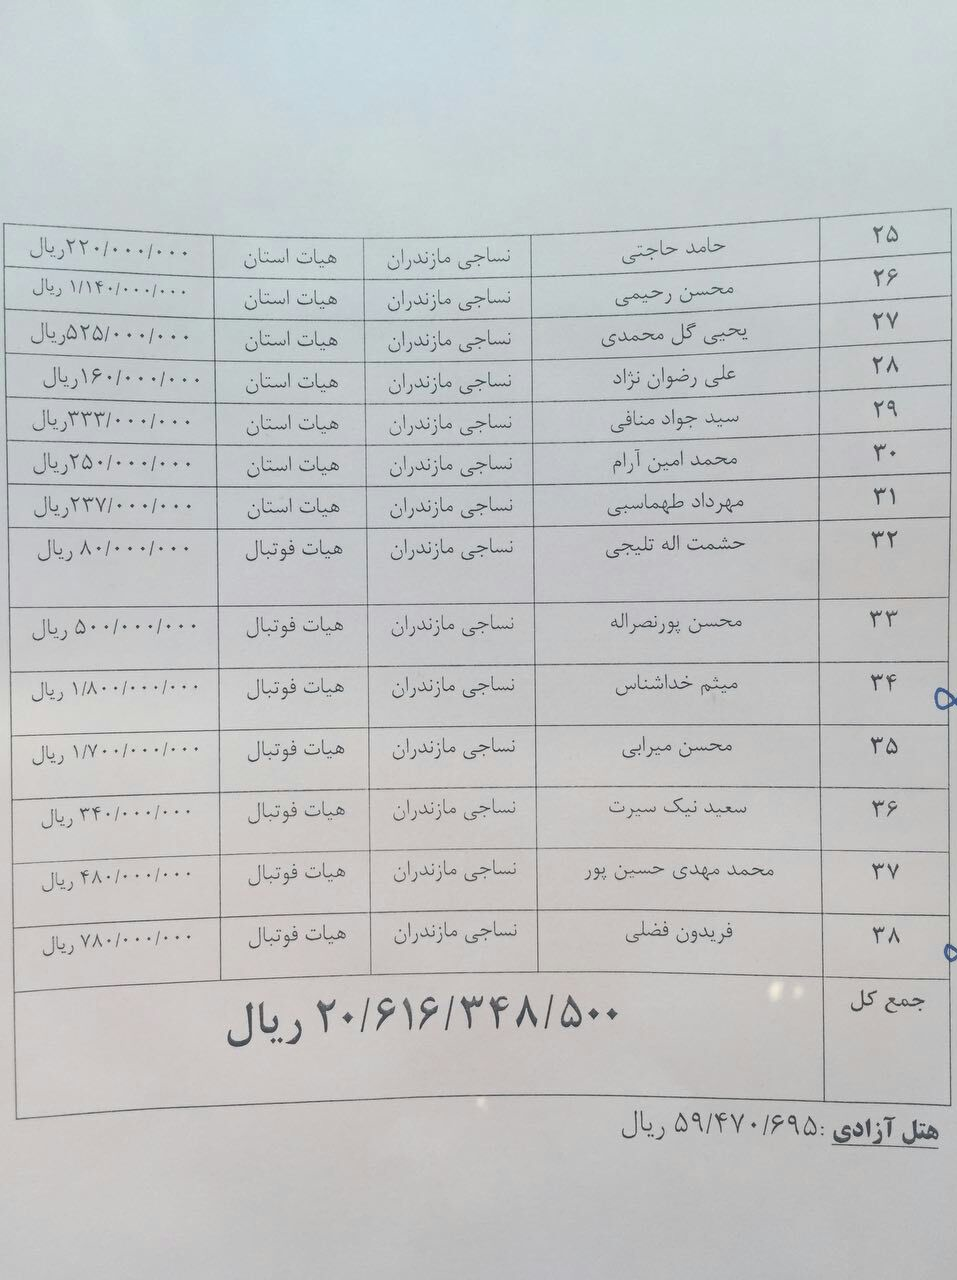 ۲۵ حامد حاجتی نساجی مازندران هیات استان ۲۲۰/۰۰۰/۰۰۰ریال
۲۶ محسن رحیمی نساجی مازندران هیات استان ۱/۱۴۰/۰۰۰/۰۰۰ ریال
۲۷ یحیی گل محمدی نساجی مازندران هیات استان ۵۲۵/۰۰۰/۰۰۰ریال
۲۸ علی رضوان نژاد نساجی مازندران هیات استان ۱۶۰/۰۰۰/۰۰۰ریال
۲۹ سید جواد منافی نساجی مازندران هیات استان ۳۳۳/۰۰۰/۰۰۰ریال
۳۰ محمد امین آرام نساجی مازندران هیات استان ۲۵۰/۰۰۰/۰۰۰ریال
۳۱ مهرداد طهماسبی نساجی مازندران هیات استان ۲۳۷/۰۰۰/۰۰۰ریال
۳۲ حشمت اله تلیجی نساجی مازندران هیات فوتبال ۸۰/۰۰۰/۰۰۰ ریال
۳۳ محسن پورنصراله نساجی مازندران هیات فوتبال ۵۰۰/۰۰۰/۰۰۰ ریال
۳۴ میثم خداشناس نساجی مازندران هیات فوتبال ۱/۸۰۰/۰۰۰/۰۰۰ ریال
۳۵ محسن میرابی نساجی مازندران هیات فوتبال ۱/۷۰۰/۰۰۰/۰۰۰ ریال
۳۶ سعید نیک سیرت نساجی مازندران هیات فوتبال ۳۴۰/۰۰۰/۰۰۰ ریال
۳۷ محمد مهدی حسین پور نساجی مازندران هیات فوتبال ۴۸۰/۰۰۰/۰۰۰ ریال
۳۸ فریدون فضلی نساجی مازندران هیات فوتبال ۷۸۰/۰۰۰/۰۰۰ ریال
جمع کل ۲۰/۶۱۶/۳۴۸/۵۰۰ ریال
هتل آزادی :۵۹/۴۷۰/۶۹۵ ریال